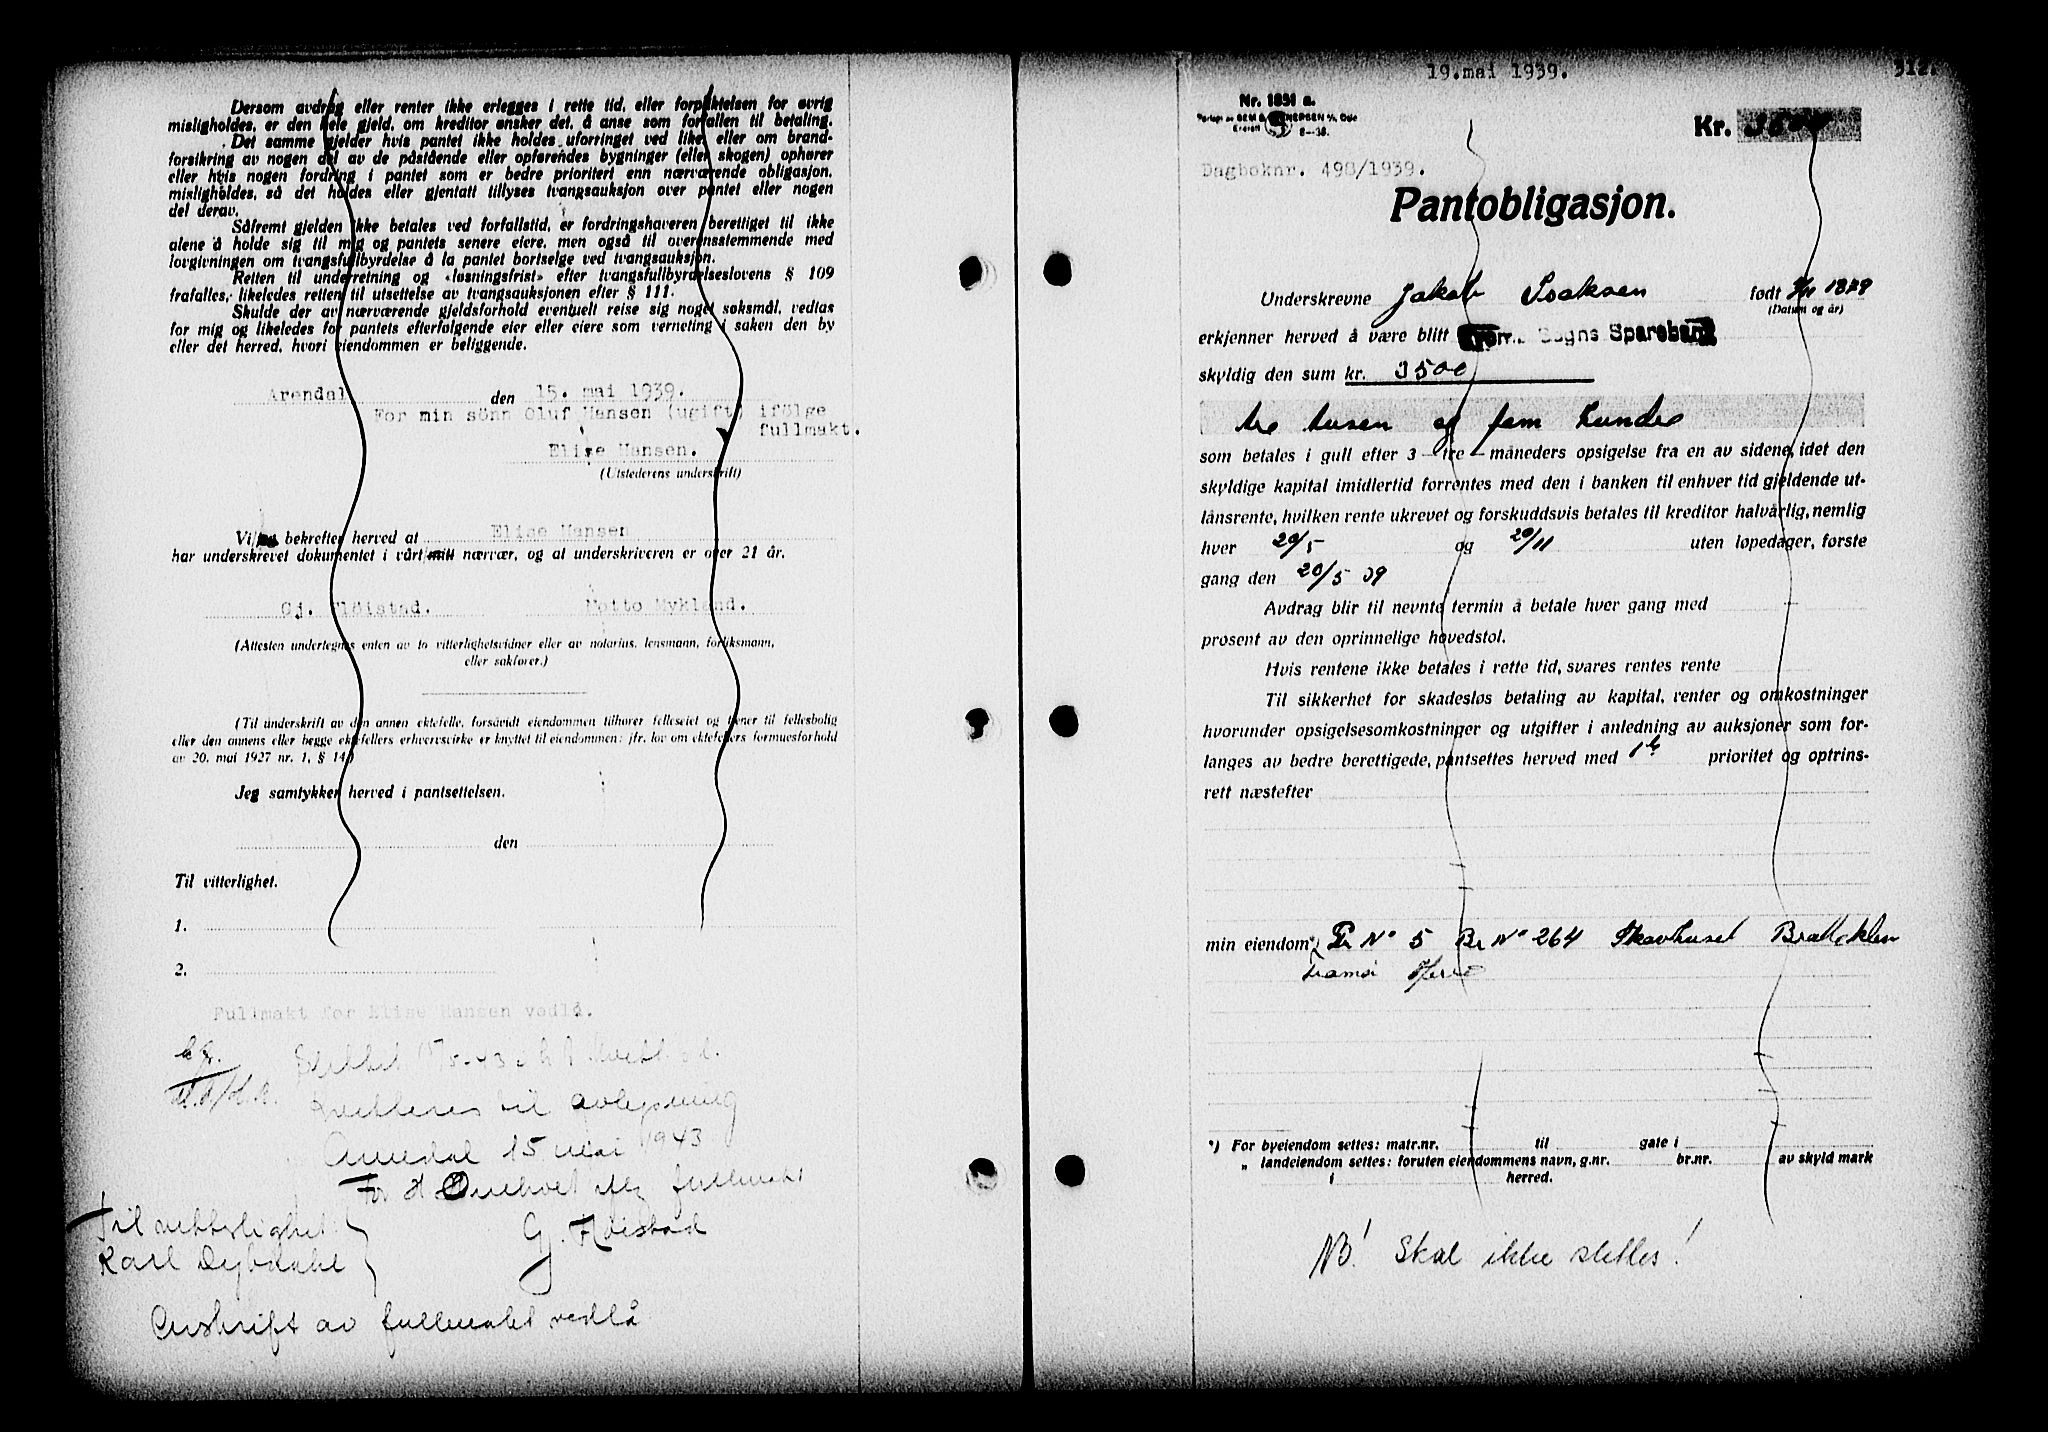 Dersom avdrag eller renter ikke erlegges i rette tid, eller forpaktelsen for øvrig
misligholdes, er den hele gjeld, om kreditor ønsker det, å anse som forfallen til betaling.
Det samme gjelder hvis pantet ikke holdes uforringet ved like eller om brand-
forsikring av nogen del av de påstående eller opførendes bygninger (eller skogen) ophører
eller hvis nogen fordring i pantet som er bedre prioritert enn nærværende obligasjon,
misligholdes, så det holdes eller gjentatt tillyses tvangsauksjon over pantet eller nogen
del derav.
Såfremt gjelden ikke betales ved forfallstid, er fordringshaveren berettiget til ikke
alene å holde sig til mig og pantets senere eiere, men også til overensstemmende med
lovgivningen om tvangsfullbyrdelse å la pantet bortselge ved tvangsauksjon.
Retten til underretning og «løsningsfrist» efter tvangsfullbyrdelseslovens § 109
frafalles, likeledes retten til utsettelse av tvangsauksjonen efter § 111.
Skulde der av nærværende gjeldsforhold eventuelt reise sig noget søksmål, vedtas
for mig og likeledes for pantets efterfølgende eier eller eiere som verneting i saken den by
eller det herred, hvori eiendommen er beliggende.
Arendal den 15. mai 1939.
For min sönn Oluf Hansen (ugift) ifölge
fullmakt.
Elise Hansen.
(Utstederens underskrift)
Vi bekrefter herved at Elise Hansen
har underskrevet dokumentet i vårt mitt nærvær, og at underskriveren er over 21 år.
Gj. Flöistad. Motto Mykland.
(Attesten undertegnes enten av to vitterlighetsvidner eller av notarius, lensmann, forliksmann,
eller sakfører.)
(Til underskrift av den annen ektefelle, forsåvidt eiendommen tilhører felleseiet og tjener til fellesbolig
eller den annens eller begge ektefellers erhvervsvirke er knyttet til eiendommen: jfr. lov om ektefellers formuesforhold
av 20. mai 1927 nr. 1, § 14)
Jeg samtykker herved i pantsettelsen.
den
Til vitterlighet.
1.
2.
Fullmakt for Elise Hansen vedlå.
Slettet 15/5-43
Kvitteres til avlysning
Arendal 15 mai 1943
for fullmakt
Gj. Flöistad
Til vitterlighet:
Karl Dybdahl
Avskrift av fullmakt vedlå
19. mai 1939. 312.
Nr. 1031 a.
8-38.
Kr. 3500
Dagboknr. 498/1939.
Pantobligasjon.
Underskrevne Jakob Isaksen født 1879
(Datum og år)
erkjenner herved å være blitt Trom. Sogns Sparebank
skyldig den sum kr. 3500
tre tusen og fem hundre
som betales i gull efter 3 – tre – måneders opsigelse fra en av sidene, idet den
skyldige kapital imidlertid forrentes med den i banken til enhver tid gjeldende ut-
lånsrente, hvilken rente ukrevet og forskuddsvis betales til kreditor halvårlig, nemlig
hver 20/5 og 20/11 uten løpedager, første
gang den 20/5 39
Avdrag blir til nevnte termin å betale hver gang med –
prosent av den oprinnelige hovedstol.
Hvis rentene ikke betales i rette tid, svares rentes rente
Til sikkerhet for skadesløs betaling av kapital, renter og omkostninger
hvorunder opsigelsesomkostninger og utgifter i anledning av auksjoner som for-
langes av bedre berettigede, pantsettes herved med 1ste prioritet og optrins-
rett næstefter
min eiendom*) Gr No 5 Br No 264 Skavhuset Brattekleiv
Tromøi Herred
*) For byeiendom settes: matr.nr. til gate i
„ landeiendom settes: foruten eiendommens navn, g.nr. br.nr. av skyld mark
i herred.
NB! Skal ikke slettes!